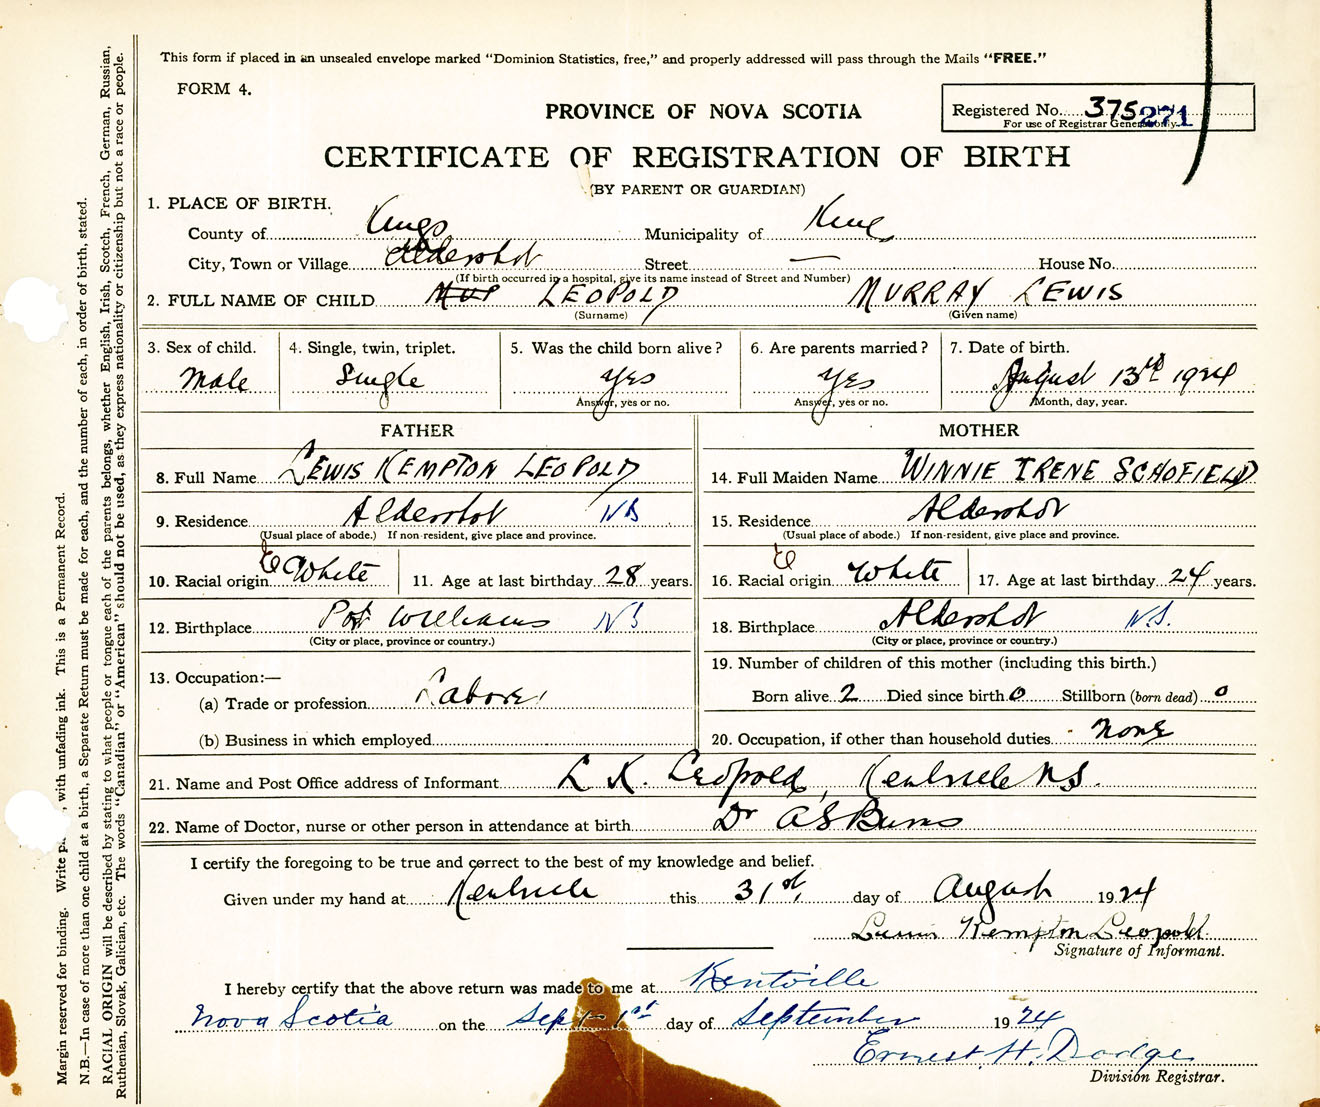 This form if placed in an unsealed envelope marked "Dominion Statistics, free," and properly addressed will pass through the Mails "FREE."
FORM 4.
PROVINCE OF NOVA SCOTIA
Registered No. 375 271
For use of Registrar General only.
CERTIFICATE OF REGISTRATION OF BIRTH
(BY PARENT OR GUARDIAN)
1. PLACE OF BIRTH.
County of Kings Municipality of Kings
City, Town or Village Aldershot Street — House No.
(If birth occurred in a hospital, give its name instead of Street and Number)
2. FULL NAME OF CHILD LEOPOLD MURRAY LEWIS
(Surname) (Given name)
3. Sex of child. 4. Single, twin, triplet. 5. Was the child born alive? 6. Are parents married? 7. Date of birth.
Male Single Yes Yes August 13th 1924
Answer, yes or no. Answer, yes or no. Month, day, year.
FATHER MOTHER
8. Full Name LEWIS KEMPTON LEOPOLD 14. Full Maiden Name WINNIE IRENE SCHOFIELD
9. Residence Aldershot NS 15. Residence Aldershot
(Usual place of abode.) If non-resident, give place and province. (Usual place of abode.) If non-resident, give place and province.
10. Racial origin E White 11. Age at last birthday 28 years. 16. Racial origin E White 17. Age at last birthday 24 years.
12. Birthplace Port Williams NS 18. Birthplace Aldershot N.S.
(City or place, province or country.) (City or place, province or country.)
13. Occupation:— 19. Number of children of this mother (including this birth.)
(a) Trade or profession Laborer Born alive 2 Died since birth 0 Stillborn (born dead) 0
(b) Business in which employed 20. Occupation, if other than household duties None
21. Name and Post Office address of Informant L K. Leopold, Kentville N.S.
22. Name of Doctor, nurse or other person in attendance at birth Dr A S Burns
I certify the foregoing to be true and correct to the best of my knowledge and belief.
Given under my hand at Kentville this 31st day of August 1924
Lewis Kempton Leopold
Signature of Informant.
I hereby certify that the above return was made to me at Kentville
Nova Scotia on the Sept 1st day of September 1924
Ernest H. Dodge
Division Registrar.
Margin reserved for binding. Write , with unfading ink. This is a Permanent Record.
N.B.—In case of more than one child at a birth, a Separate Return must be made for each, and the number of each, in order of birth, stated.
RACIAL ORIGIN will be described by stating to what people or tongue each of the parents belongs, whether English, Irish, Scotch, French, German, Russian,
Ruthenian, Slovak, Galician, etc. The words "Canadian" or "American" should not be used, as they express nationality or citizenship but not a race or people.